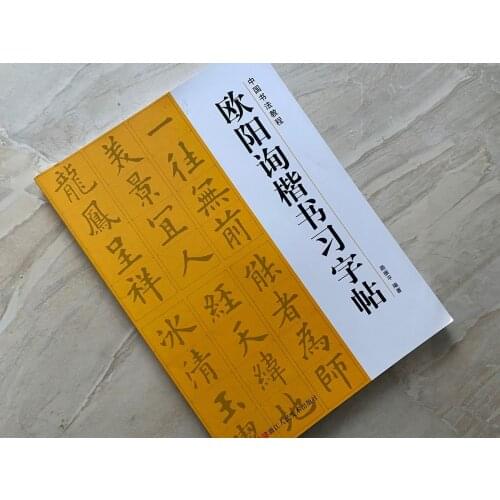 中国书法教程
欧阳询楷书习字帖
编著
一往無前
美景宜人
龍鳳呈祥
能者為師
經天緯地
冰清玉
浙江人民美术出版社